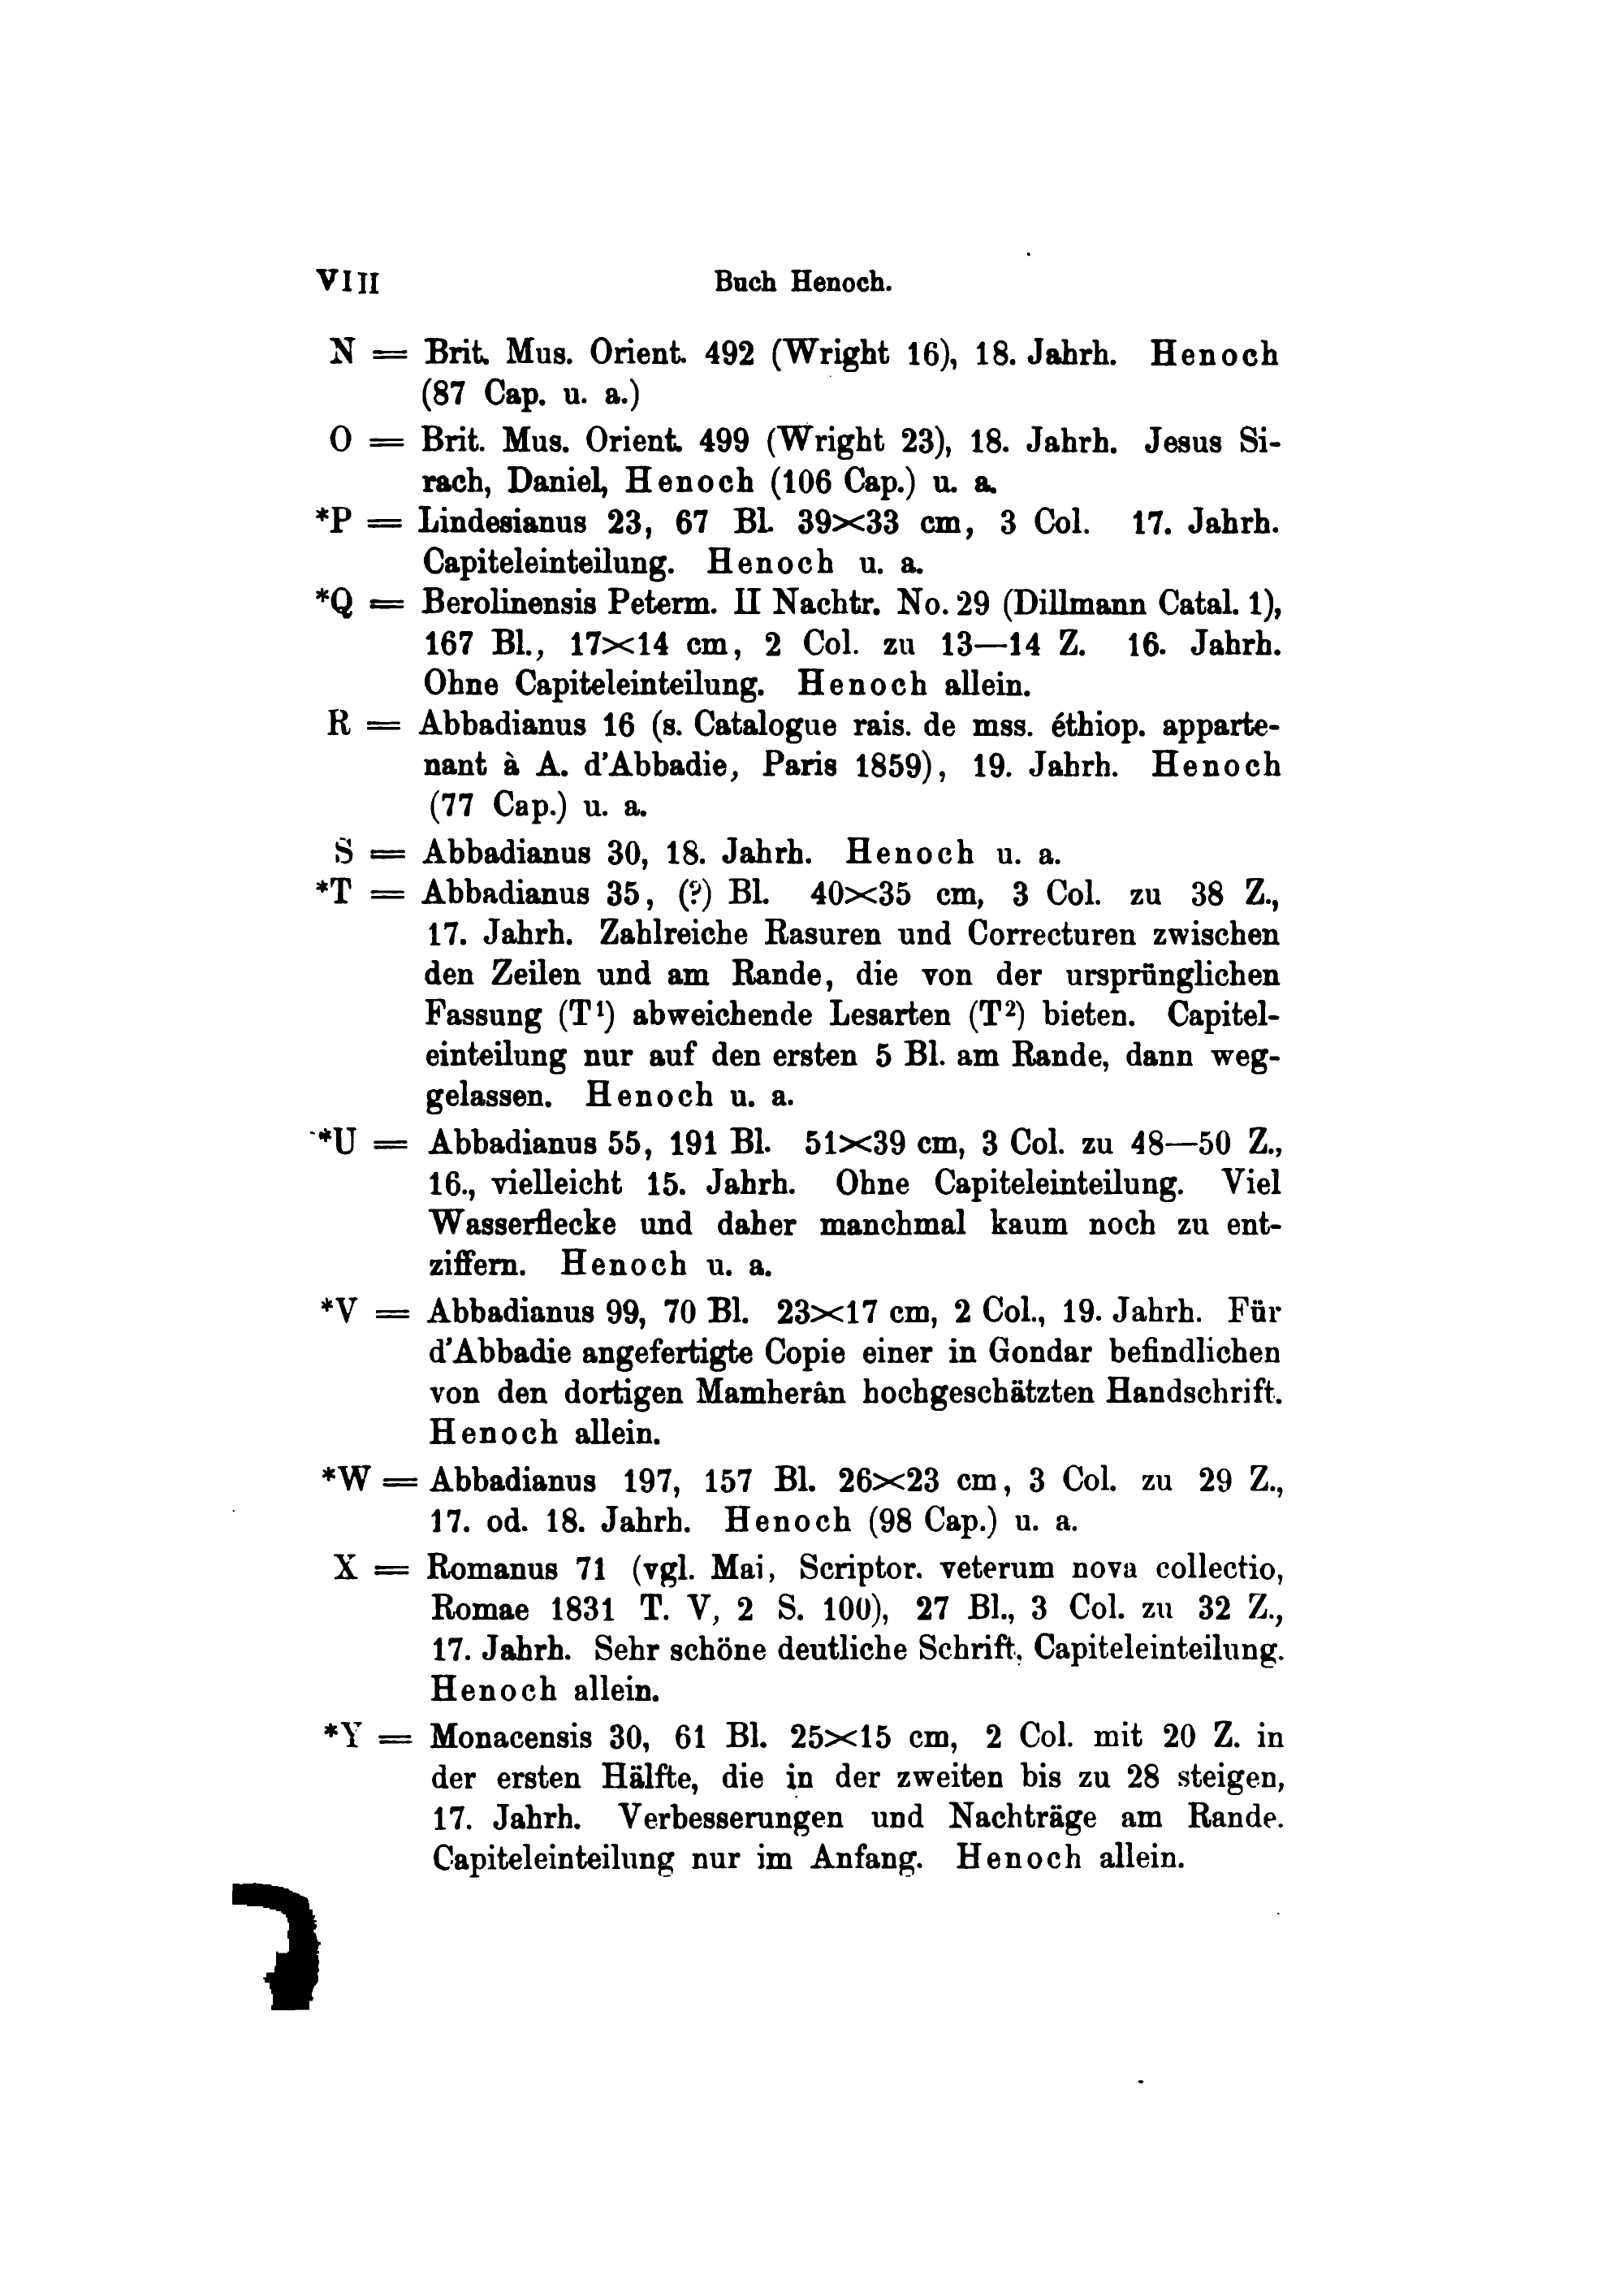 VIII Buch Henoch.
N = Brit. Mus. Orient. 492 (Wright 16), 18. Jahrh. Henoch
(87 Cap. u. a.)
O = Brit. Mus. Orient. 499 (Wright 23), 18. Jahrh. Jesus Si-
rach, Daniel, Henoch (106 Cap.) u. a.
*P = Lindesianus 23, 67 Bl. 39×33 cm, 3 Col. 17. Jahrh.
Capiteleinteilung. Henoch u. a.
*Q = Berolinensis Peterm. II Nachtr. No. 29 (Dillmann Catal. 1),
167 Bl., 17×14 cm, 2 Col. zu 13—14 Z. 16. Jahrh.
Ohne Capiteleinteilung. Henoch allein.
R = Abbadianus 16 (s. Catalogue rais. de mss. éthiop. apparte-
nant à A. d'Abbadie, Paris 1859), 19. Jahrh. Henoch
(77 Cap.) u. a.
S = Abbadianus 30, 18. Jahrh. Henoch u. a.
*T = Abbadianus 35, (?) Bl. 40×35 cm, 3 Col. zu 38 Z.,
17. Jahrh. Zahlreiche Rasuren und Correcturen zwischen
den Zeilen und am Rande, die von der ursprünglichen
Fassung (T¹) abweichende Lesarten (T²) bieten. Capitel-
einteilung nur auf den ersten 5 Bl. am Rande, dann weg-
gelassen. Henoch u. a.
*U = Abbadianus 55, 191 Bl. 51×39 cm, 3 Col. zu 48—50 Z.,
16., vielleicht 15. Jahrh. Ohne Capiteleinteilung. Viel
Wasserflecke und daher manchmal kaum noch zu ent-
ziffern. Henoch u. a.
*V = Abbadianus 99, 70 Bl. 23×17 cm, 2 Col., 19. Jahrh. Für
d'Abbadie angefertigte Copie einer in Gondar befindlichen
von den dortigen Mamherân hochgeschätzten Handschrift.
Henoch allein.
*W = Abbadianus 197, 157 Bl. 26×23 cm, 3 Col. zu 29 Z.,
17. od. 18. Jahrh. Henoch (98 Cap.) u. a.
X = Romanus 71 (vgl. Mai, Scriptor. veterum nova collectio,
Romae 1831 T. V, 2 S. 100), 27 Bl., 3 Col. zu 32 Z.,
17. Jahrh. Sehr schöne deutliche Schrift. Capiteleinteilung.
Henoch allein.
*Y = Monacensis 30, 61 Bl. 25×15 cm, 2 Col. mit 20 Z. in
der ersten Hälfte, die in der zweiten bis zu 28 steigen,
17. Jahrh. Verbesserungen und Nachträge am Rande.
Capiteleinteilung nur im Anfang. Henoch allein.